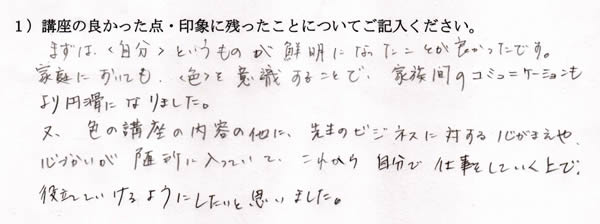 1）講座の良かった点・印象に残ったことについてご記入ください。
まずは、〈自分〉というものが鮮明になったことが良かったです。
家庭においても、〈色〉を意識することで、家族間のコミュニケーションも
より円滑になりました。
又、色の講座の内容の他に、先生のビジネスに対する心がまえや、
心づかいが随所に入っていて、これから自分で仕事をしていく上で、
役立てていけるようにしたいと思いました。